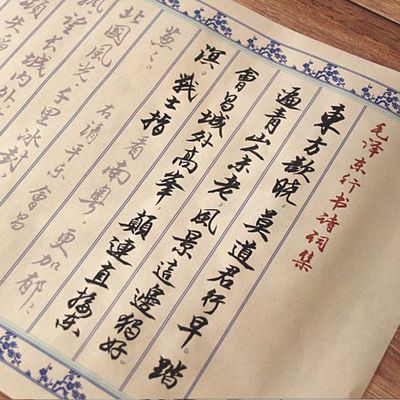 毛泽东行书诗词集
東方欲晓。莫道君行早。踏
遍青山人未老。風景這邊獨好。
會昌城外高峯 顛連直接東
溟。戰士指看南粤。更加郁〻
蔥〻。右清平乐 會昌
北國風光。千里冰封
望長城内外
頓失滔